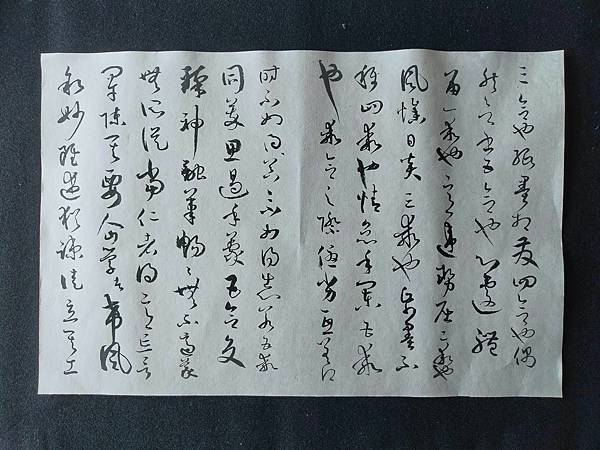 三合也紙墨相發四合也偶
然欲書五合也心遽體
留一乖也意違勢屈二乖也
風燥日炎三乖也紙墨不
稱四乖也情怠手闌五乖
也乖合之際優劣互差得
時不如得器〻不如得志若五乖
同萃思遏手蒙五合交
臻神融筆暢〻無不適蒙
無所從當仁者得意忘言
罕陳其要企學者希風
敘妙雖述猶疎徒立其工